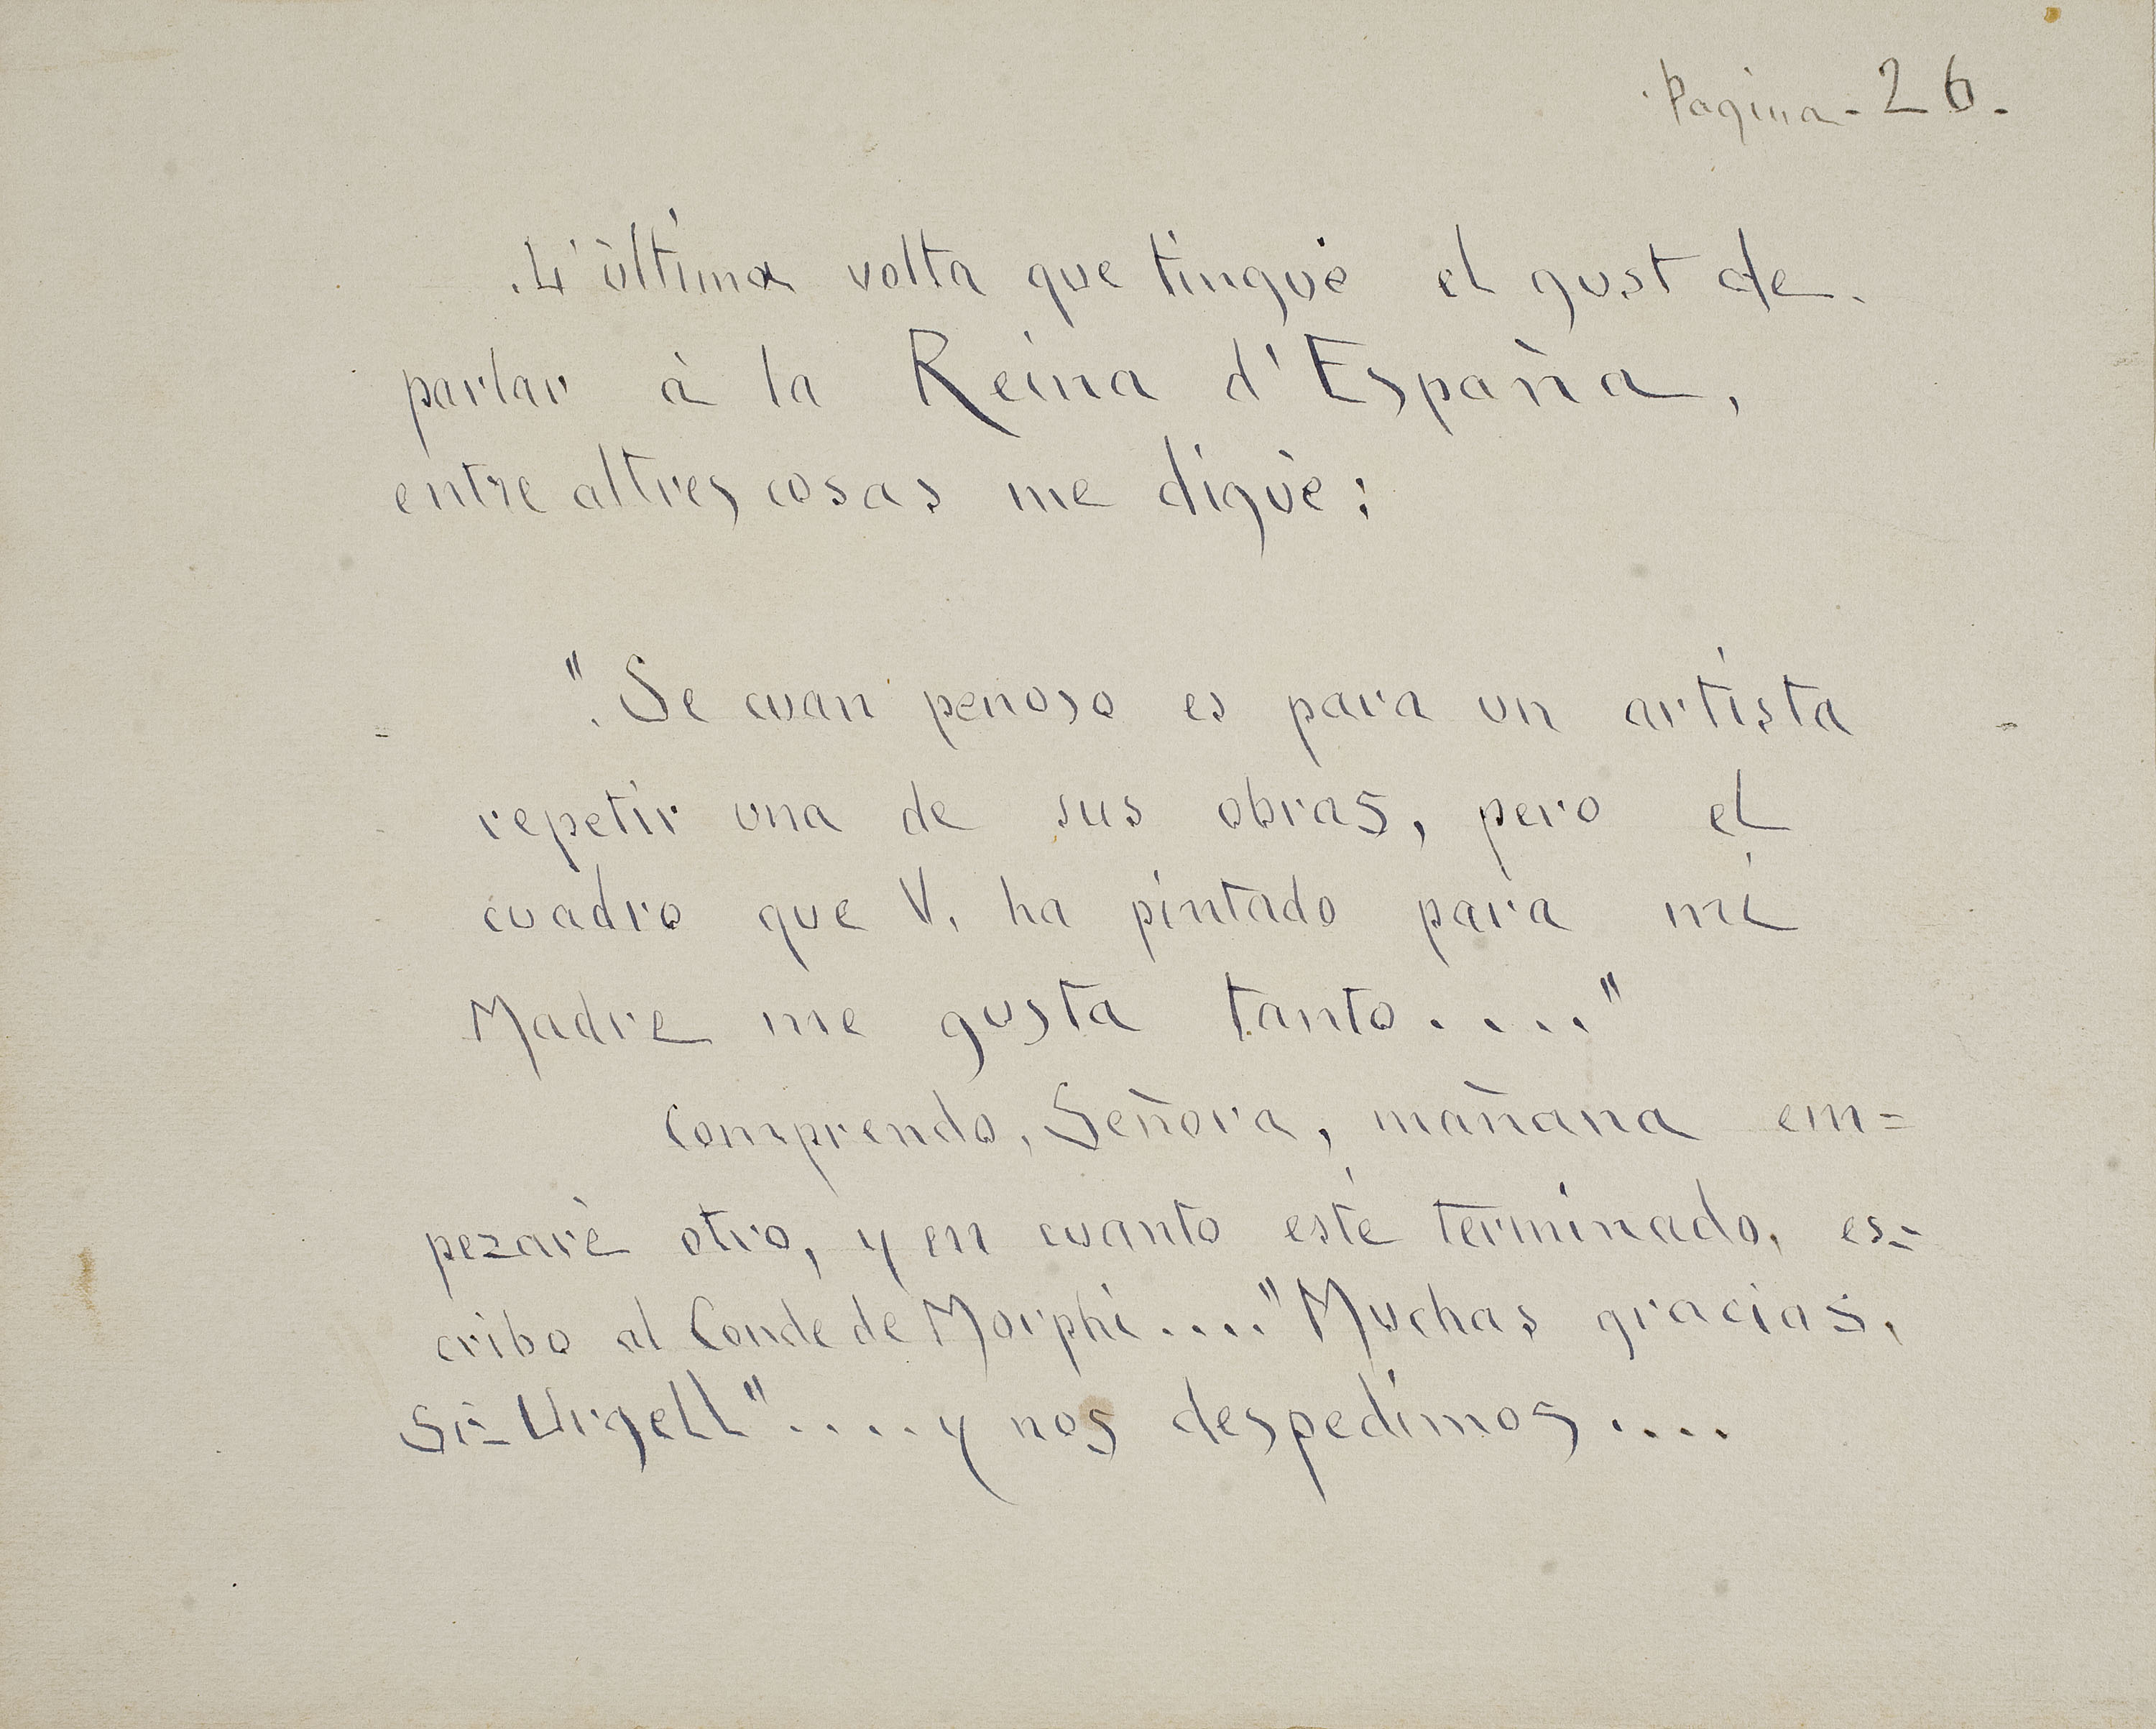 Pagina - 26.
L'última volta que tingué el gust de
parlar à la Reina d'España,
entre altres cosas me digué:
"Se cuan penoso es para un artista
repetir una de sus obras, pero el
cuadro que V. ha pintado para mi
Madre me gusta tanto...."
Comprendo, Señora, mañana em=
pezaré otro, y en cuanto esté terminado, es=
cribo al Conde de Morphi...."Muchas gracias,
Sr Urgell"....y nos despedimos....